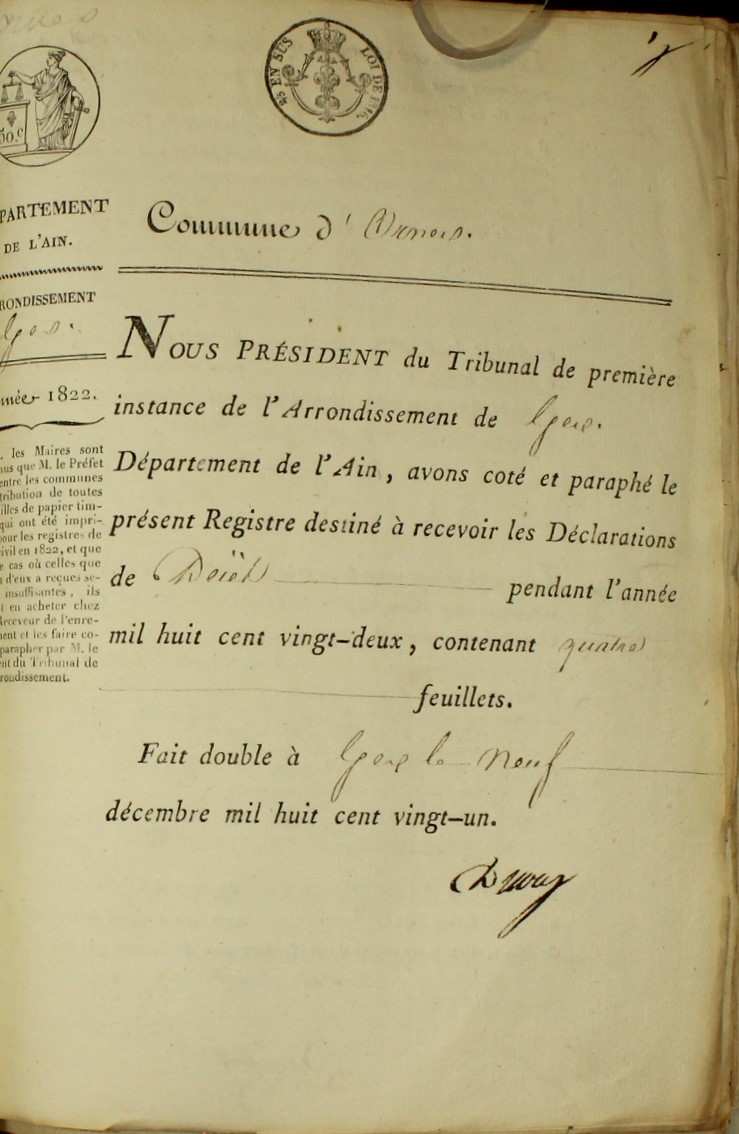 50.C
25 EN SUS
LOI DE 1816.
PARTEMENT
DE L'AIN.
RONDISSEMENT
Gex.
née 1822.
. les Maires sont
nus que M. le Préfet
entre les communes
tribution de toutes
illes de papier tim-
qui ont été impri-
pour les registres de
ivil en 1822, et que
e cas où celles que
d'eux a reçues se-
insuffisantes, ils
t en acheter chez
Receveur de l'enre-
ment et les faire co-
parapher par M. le
ent du Tribunal de
rondissement.
Commune d' Ornex.
NOUS PRÉSIDENT du Tribunal de première
instance de l'Arrondissement de Gex.
Département de l'Ain, avons coté et paraphé le
présent Registre destiné à recevoir les Déclarations
de Décès pendant l'année
mil huit cent vingt-deux, contenant quatre
feuillets.
Fait double à Gex le neuf
décembre mil huit cent vingt-un.